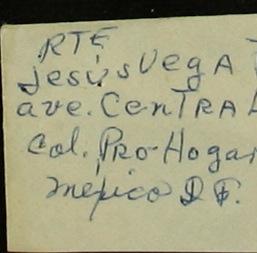 RTE
Jesús Vega
ave. CenTRAL
Col. PRo-Hogar
México D F.